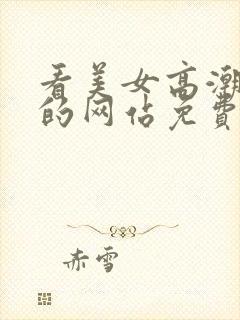 看美女高潮
的网佔免費
赤雪